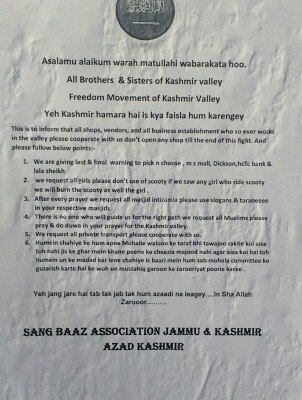 Asalamu alaikum warah matullahi wabarakata hoo.
All Brothers & Sisters of Kashmir valley
Freedom Movement of Kashmir Valley
Yeh Kashmir hamara hai is kya faisla hum karengey
This is to inform that all shops, vendors, and all business establishment who so ever works
in the valley please cooperate with us don't open any shop till the end of this fight. And
please follow below points:-
1. We are giving last & final warning to pick n choose , m s mall, Dickson,hdfc bank &
lala sheikh
2. we request all girls please don't use of scooty if we saw any girl who ride scooty
we will burn the scooty as well the girl .
3. After every prayer we request all masjid intizamia please use slogans & taraneeee
in your respective masjids.
4. There is no one who will guide us for the right path we request all Muslims please
pray & do duwa in your prayer for the Kashmir valley.
5. We request all private transport please cooperate with us.
6. Humein chahiye ke hum apne Mohalle waloon ke taraf bhi tawajoo rakhe koi aise
toh nahi jis ke ghar mein khane peene ke cheezia majood nahi agar aisa koi hai toh
humein un ke madad kar lene chahye is baari mein hum sab mohala committee ko
guzarish karte hai ke woh un mustahiq garoon ke zarooriyat poorie karee .
Yeh jang jare hai tab tak jab tak hum azaadi na leagey....In Sha Allah
Zarooor..........
SANG BAAZ ASSOCIATION JAMMU & KASHMIR
AZAD KASHMIR